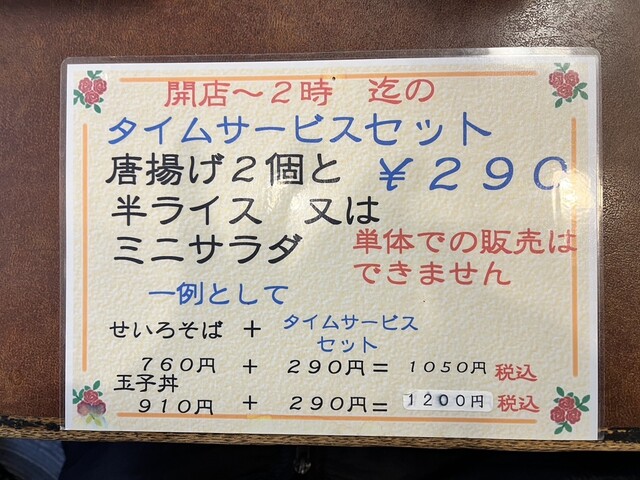 開店～2時 迄の
タイムサービスセット
唐揚げ2個と ¥290
半ライス 又は
ミニサラダ
単体での販売は
できません
一例として
せいろそば + タイムサービス
セット
760円 + 290円= 1050円 税込
玉子丼
910円 + 290円= 1200円 税込